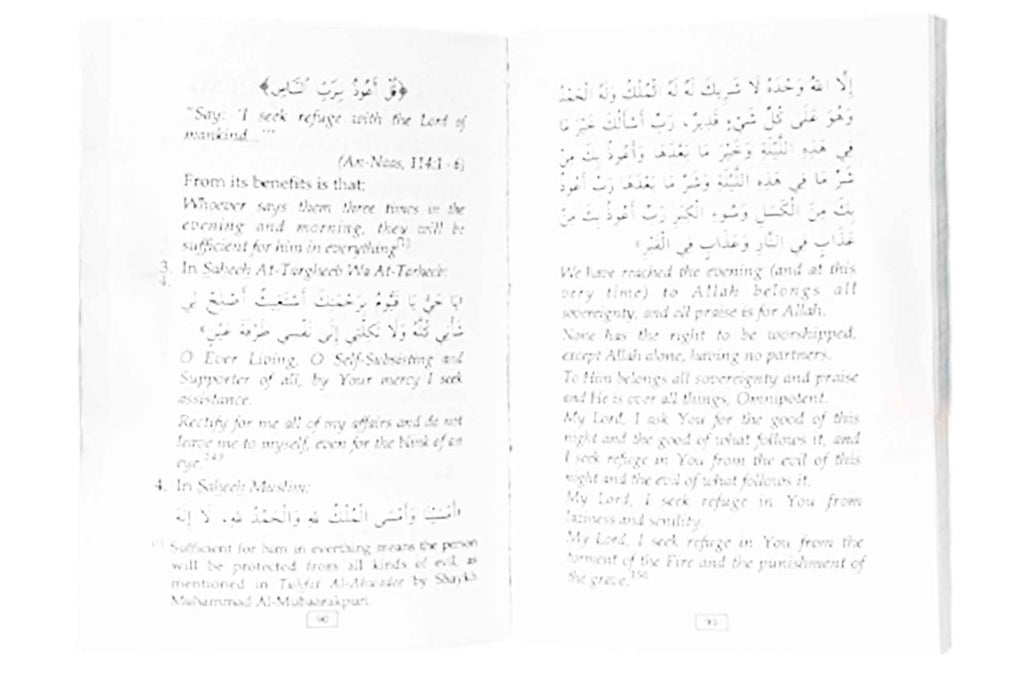 ﴿قُلْ أَعُوذُ بِرَبِّ النَّاسِ﴾
"Say: 'I seek refuge with the Lord of
mankind...'"
(An-Naas, 114:1-6)
From its benefits is that:
Whoever says them three times in the
evening and morning, they will be
sufficient for him in everything[1]
3. In Saheeh At-Targheeb Wa At-Tarheeb:
4.
«يَا حَيُّ يَا قَيُّومُ بِرَحْمَتِكَ أَسْتَغِيثُ أَصْلِحْ لِي
شَأْنِي كُلَّهُ وَلَا تَكِلْنِي إِلَى نَفْسِي طَرْفَةَ عَيْنٍ»
O Ever Living, O Self-Subsisting and
Supporter of all, by Your mercy I seek
assistance.
Rectify for me all of my affairs and do not
leave me to myself, even for the blink of an
eye.149
4. In Saheeh Muslim:
«أَمْسَيْنَا وَأَمْسَى الْمُلْكُ لِلهِ وَالْحَمْدُ لِلهِ، لَا إِلَهَ
[1] Sufficient for him in everthing means the person
will be protected from all kinds of evil, as
mentioned in Tuhfat Al-Ahwadee by Shaykh
Muhammad Al-Mubaarakpuri.
90
إِلَّا اللهُ وَحْدَهُ لَا شَرِيكَ لَهُ لَهُ الْمُلْكُ وَلَهُ الْحَمْدُ
وَهُوَ عَلَى كُلِّ شَيْءٍ قَدِيرٌ، رَبِّ أَسْأَلُكَ خَيْرَ مَا
فِي هَذِهِ اللَّيْلَةِ وَخَيْرَ مَا بَعْدَهَا وَأَعُوذُ بِكَ مِنْ
شَرِّ مَا فِي هَذِهِ اللَّيْلَةِ وَشَرِّ مَا بَعْدَهَا رَبِّ أَعُوذُ
بِكَ مِنَ الْكَسَلِ وَسُوءِ الْكِبَرِ رَبِّ أَعُوذُ بِكَ مِنْ
عَذَابٍ فِي النَّارِ وَعَذَابٍ فِي الْقَبْرِ»
We have reached the evening (and at this
very time) to Allah belongs all
sovereignty, and all praise is for Allah.
None has the right to be worshipped,
except Allah alone, having no partners.
To Him belongs all sovereignty and praise
and He is over all things, Omnipotent.
My Lord, I ask You for the good of this
night and the good of what follows it, and
I seek refuge in You from the evil of this
night and the evil of what follows it.
My Lord, I seek refuge in You from
laziness and senility.
My Lord, I seek refuge in You from the
torment of the Fire and the punishment of
the grave.150
91